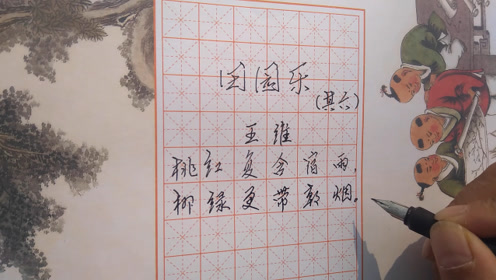 田园乐
(其六)
王维
桃红复含宿雨,
柳绿更带朝烟。